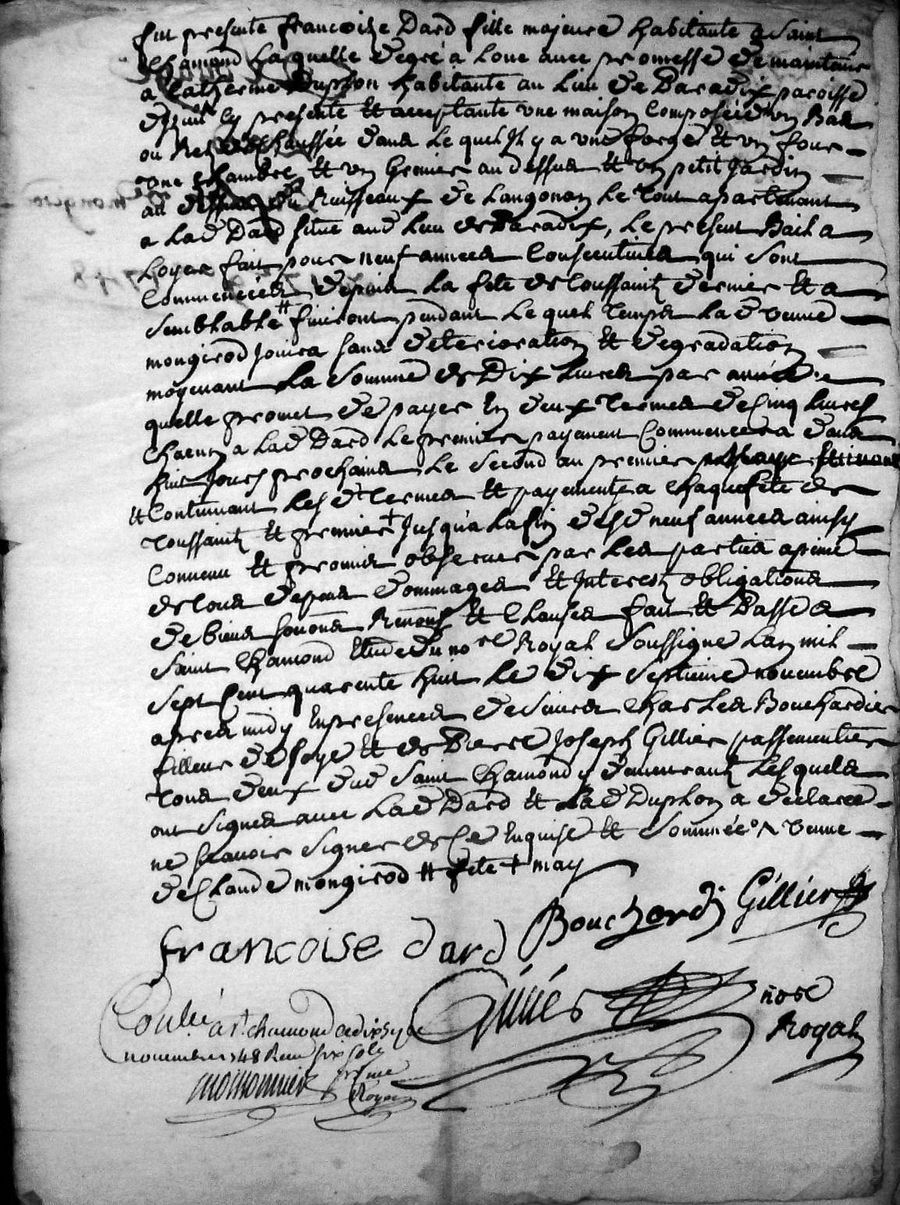 fut presente francoise Dard fille majeure habitante a Saint
Chamond Laquelle degré a Loué avec promesse de maintenir
a Catherine Duplon habitante au Lieu de Paradix paroisse
cy presente et acceptante une maison Composée d'un Bas
ou Rez de Chaussée dans Le quel Il y a une forge et un four
une chambre et un Grenier au dessus et un petit Jardin
au Ruisseaux de Langonan Le Tout apartenant
a Lad Dard situé aud Lieu de Paradix, Le present Bail a
Loyer fait pour neuf années Consecutives qui Sont
Commencées depuis La fete de Toussaint dernier et a
Semblable # finiront pendant Le quel Temps Lad veuve
mongirod Joüira sans deterioration et degradation
moyenant La Somme de Dix Livres par année
quelle promet de payer En deux Termes de Cinq Livres
Chacun a Lad Dard Le premier payement Commencera dans
huit Jours prochains Le Second au premier
et Continuant Les dt Termes et payements a Chaque fete de
Toussaint et premier + Jusqua La fin desd neuf années ainsy
Convenu et promis observer par Les parties a peine
de tous depens dommages et Interest obligations
de biens soumis Renon et Clauses fait et Passé a
Saint Chamond Etude du nore Royal Soussigné Lan mil
Sept Cent quarente huit Le dix Septieme novembre
apres midy En presences de Sieurs Charles Bouchardie
filleur de soye et de Pierre Joseph Gillier passementier
Tous deux dud Saint Chamond y demeurants Lesquels
ont Signés avec Lad Dard et Lad Duplon a declaré
ne scavoir Signer de Ce Enquise et Sommée veuve
de Claude mongirod # fete + may
francoise dard Bouchardi Gillier
nore
Royal
Conlé a St chamond
novembre 1748 Recu six sols
Royal